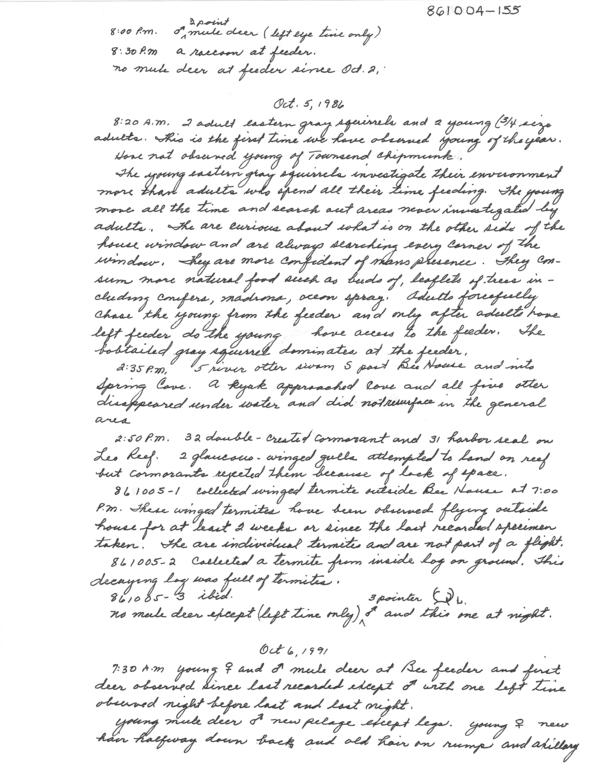 861004-155
3 point
8:00 P.m. ♂ mule deer (left eye tine only)
8:30 P.m a raccoon at feeder.
no mule deer at feeder since Oct. 2,
Oct. 5, 1986
8:20 A.m. 2 adult eastern gray squirrels and 2 young (3/4 size
adults. This is the first time we have observed young of the year.
Have not observed young of Townsend chipmunk.
The young eastern gray squirrels investigate their environment
more than adults who spend all their time feeding. The young
move all the time and search out areas never investigated by
adults. The are curious about what is on the other side of the
house window and are always searching every corner of the
window. They are more confident of mans presence. They con-
sum more natural food such as buds of, leaflets of trees in-
cluding conifers, madrona, ocean spray. Adults forcefully
chase the young from the feeder and only after adults have
left feeder do the young have access to the feeder. The
bobtailed gray squirrel dominates at the feeder.
2:35 P.m. 5 river otter swam S past Bee House and into
Spring Cove. A kyak approached cove and all five otter
disappeared under water and did not resurface in the general
area
2:50 P.m. 32 double-crested cormorant and 31 harbor seal on
Leo Reef. 2 glaucous-winged gulls attempted to land on reef
but cormorants rejected them because of lack of space.
861005-1 collected winged termite outside Bee House at 7:00
P.m. These winged termites have been observed flying outside
house for at least 2 weeks or since the last recorded specimen
taken. The are individual termites and are not part of a flight.
861005-2 Collected a termite from inside log on ground. This
decaying log was full of termites.
861005-3 ibid. 3 pointer L.
no mule deer except (left tine only) ♂ and this one at night.
Oct 6, 1991
7:30 A.m young ♀ and ♂ mule deer at Bee feeder and first
deer observed since last recorded except ♂ with one left tine
observed night before last and last night.
young mule deer ♂ new pelage except legs. young ♀ new
hair halfway down back and old hair on rump and axillary